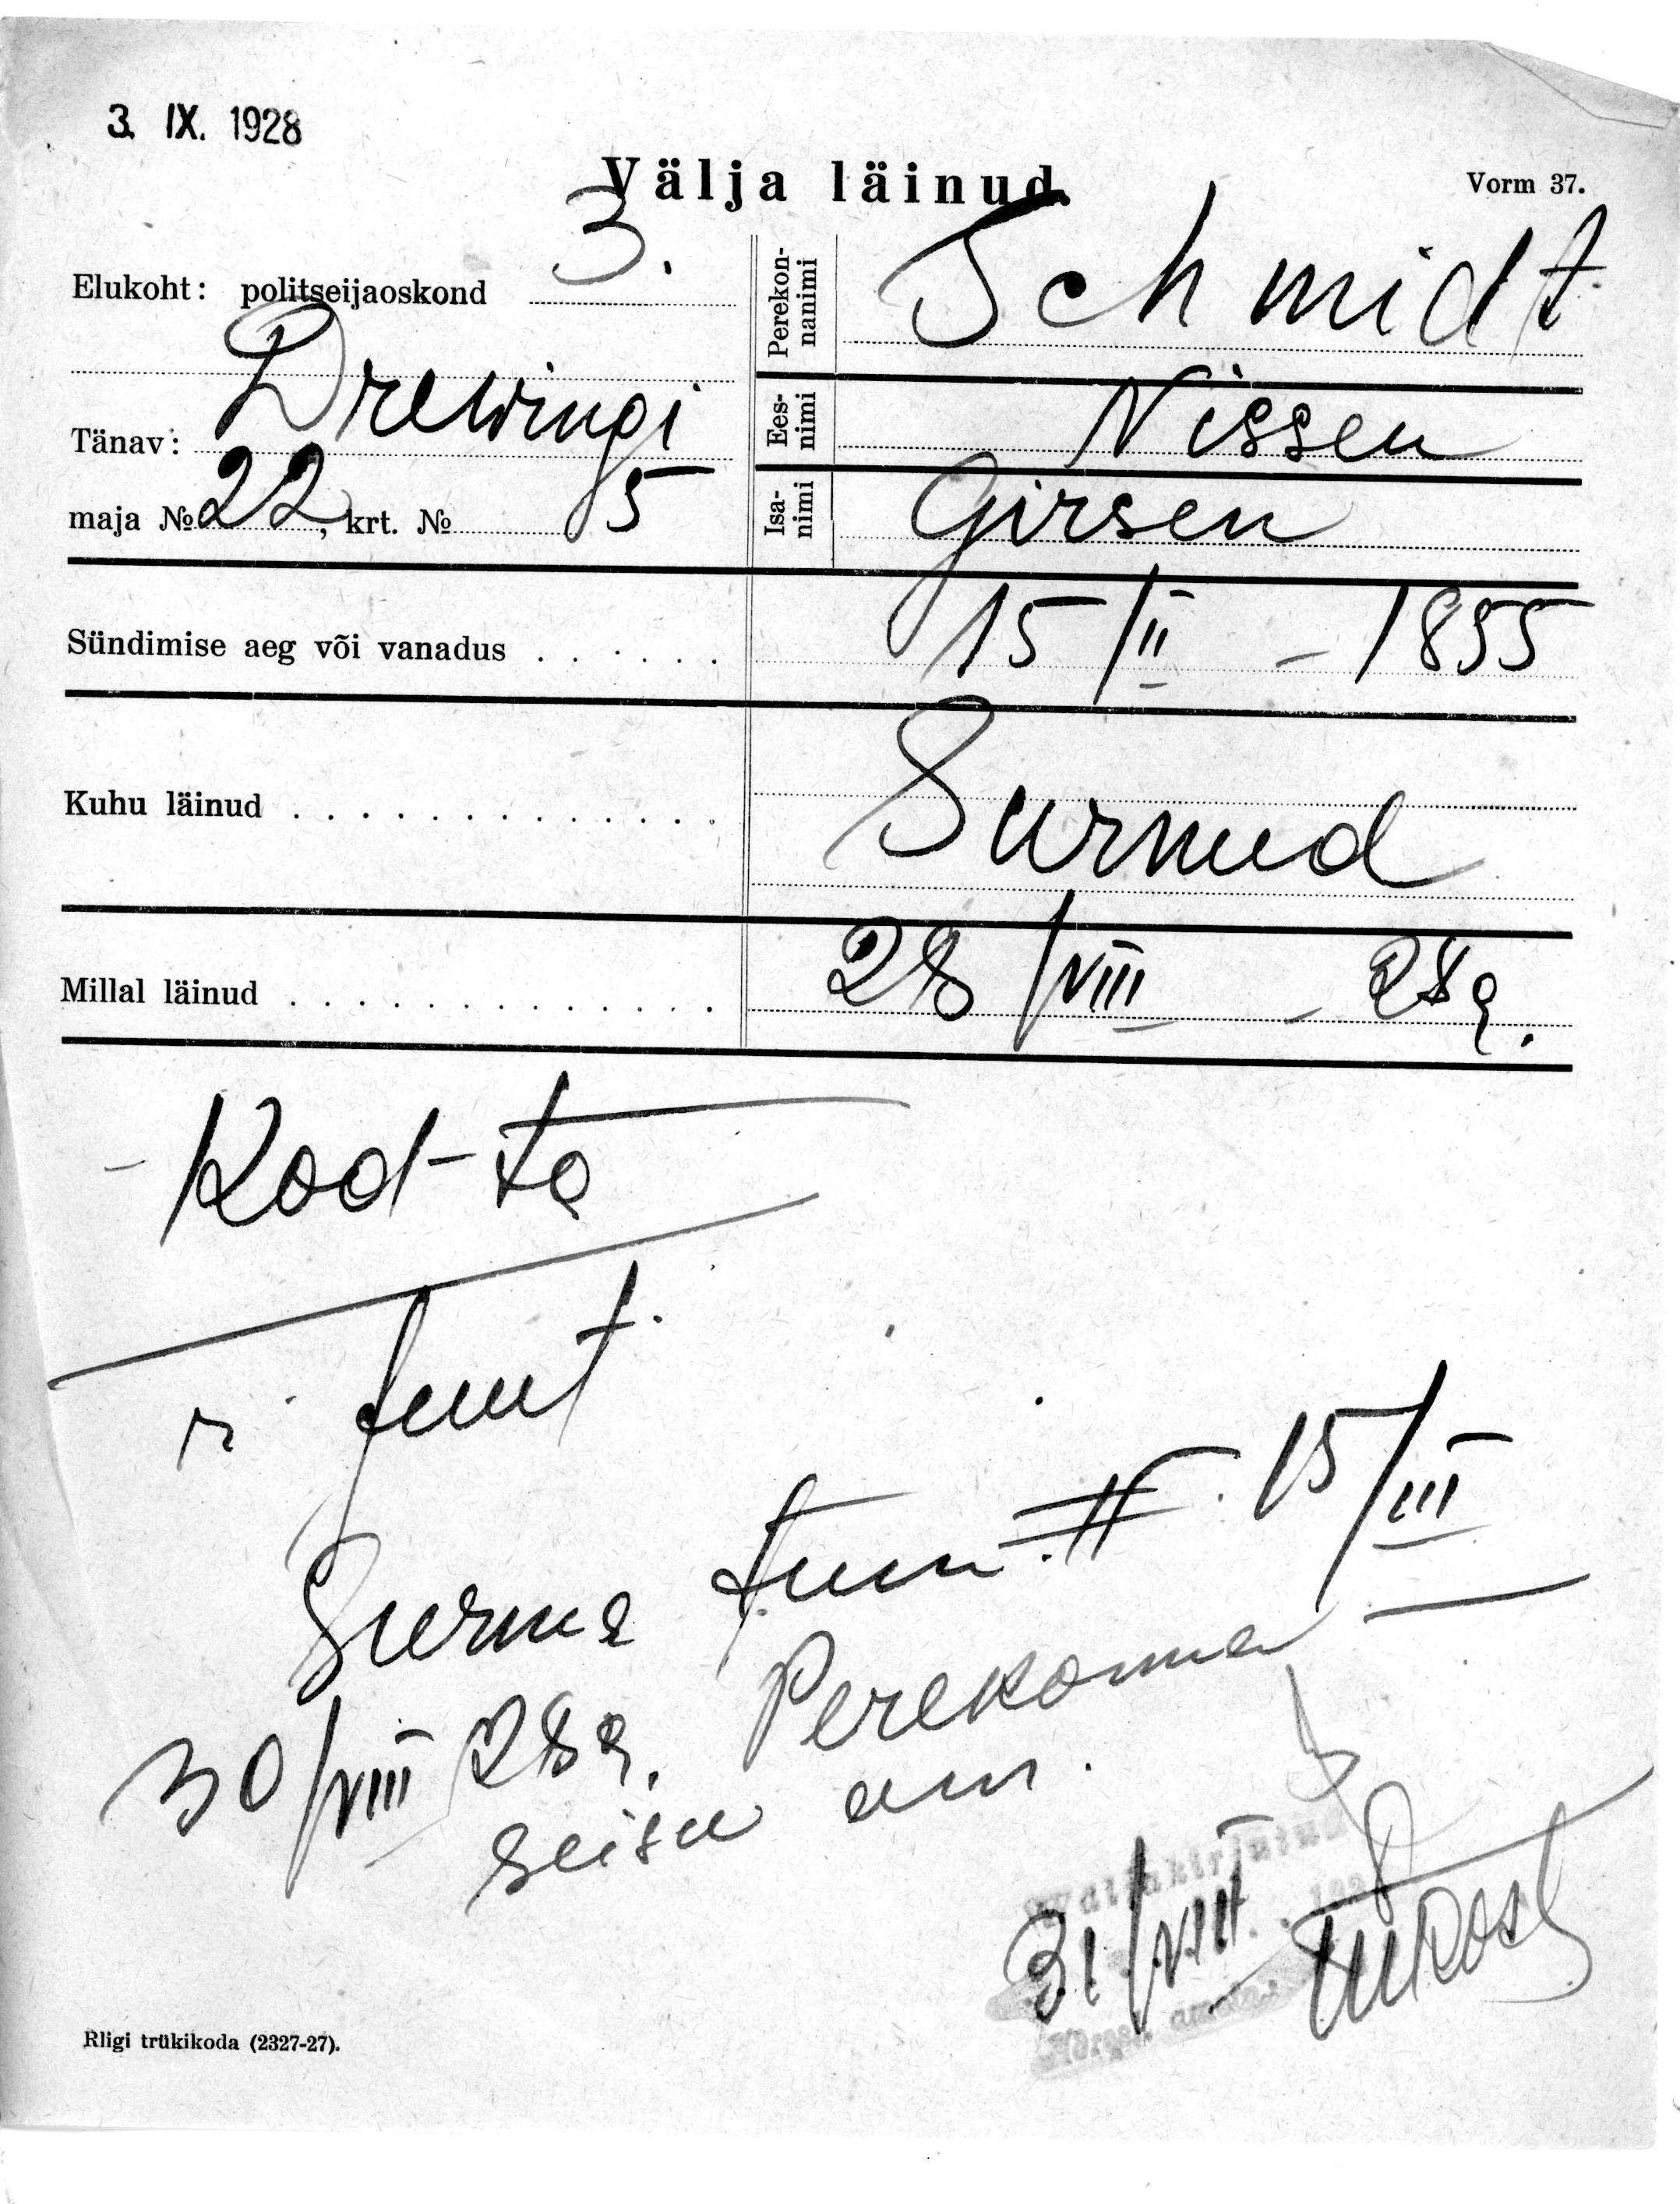 3. IX. 1928
Välja läinud.
Vorm 37.
Elukoht: politseijaoskond 3.
Tänav: Drewingi
maja № 22, krt. № 5
Perekonnanimi Schmidt
Eesnimi Nissen
Isanimi Girsen
Sündimise aeg või vanadus . . . . . . 15/II – 1855
Kuhu läinud . . . . . . . . . . . . . Surnud
Millal läinud . . . . . . . . . . . . . 28/VIII – 28 a.
– Kod-ta
juut.
Surma tunn. 15/III
30/VIII 28 a. Perekonna
seisu am.
31/VIII
Riigi trükikoda (2327-27).